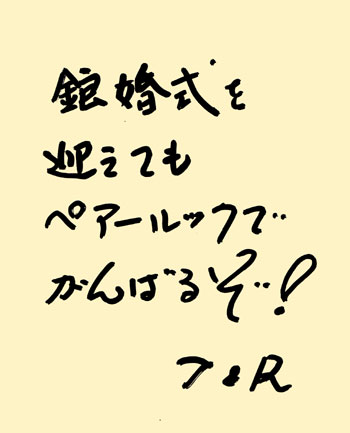 銀婚式を
迎えても
ペアールックで
がんばるぞ!
T&R